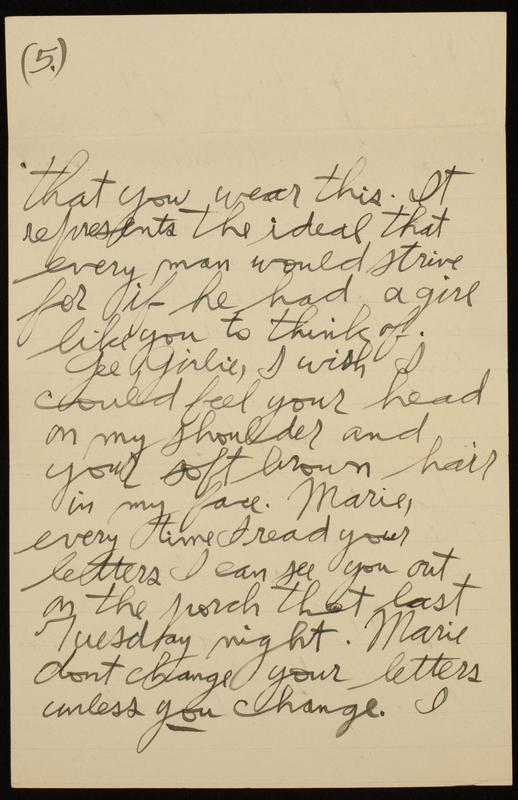 (5.)
that you wear this. It
represents the ideal that
every man would strive
for if he had a girl
like you to think of.
Gee, Girlie, I wish I
could feel your head
on my shoulder and
your soft brown hair
in my face. Marie,
every time I read your
letters I can see you out
on the porch that last
Tuesday night. Marie
dont change your letters
unless you change. I